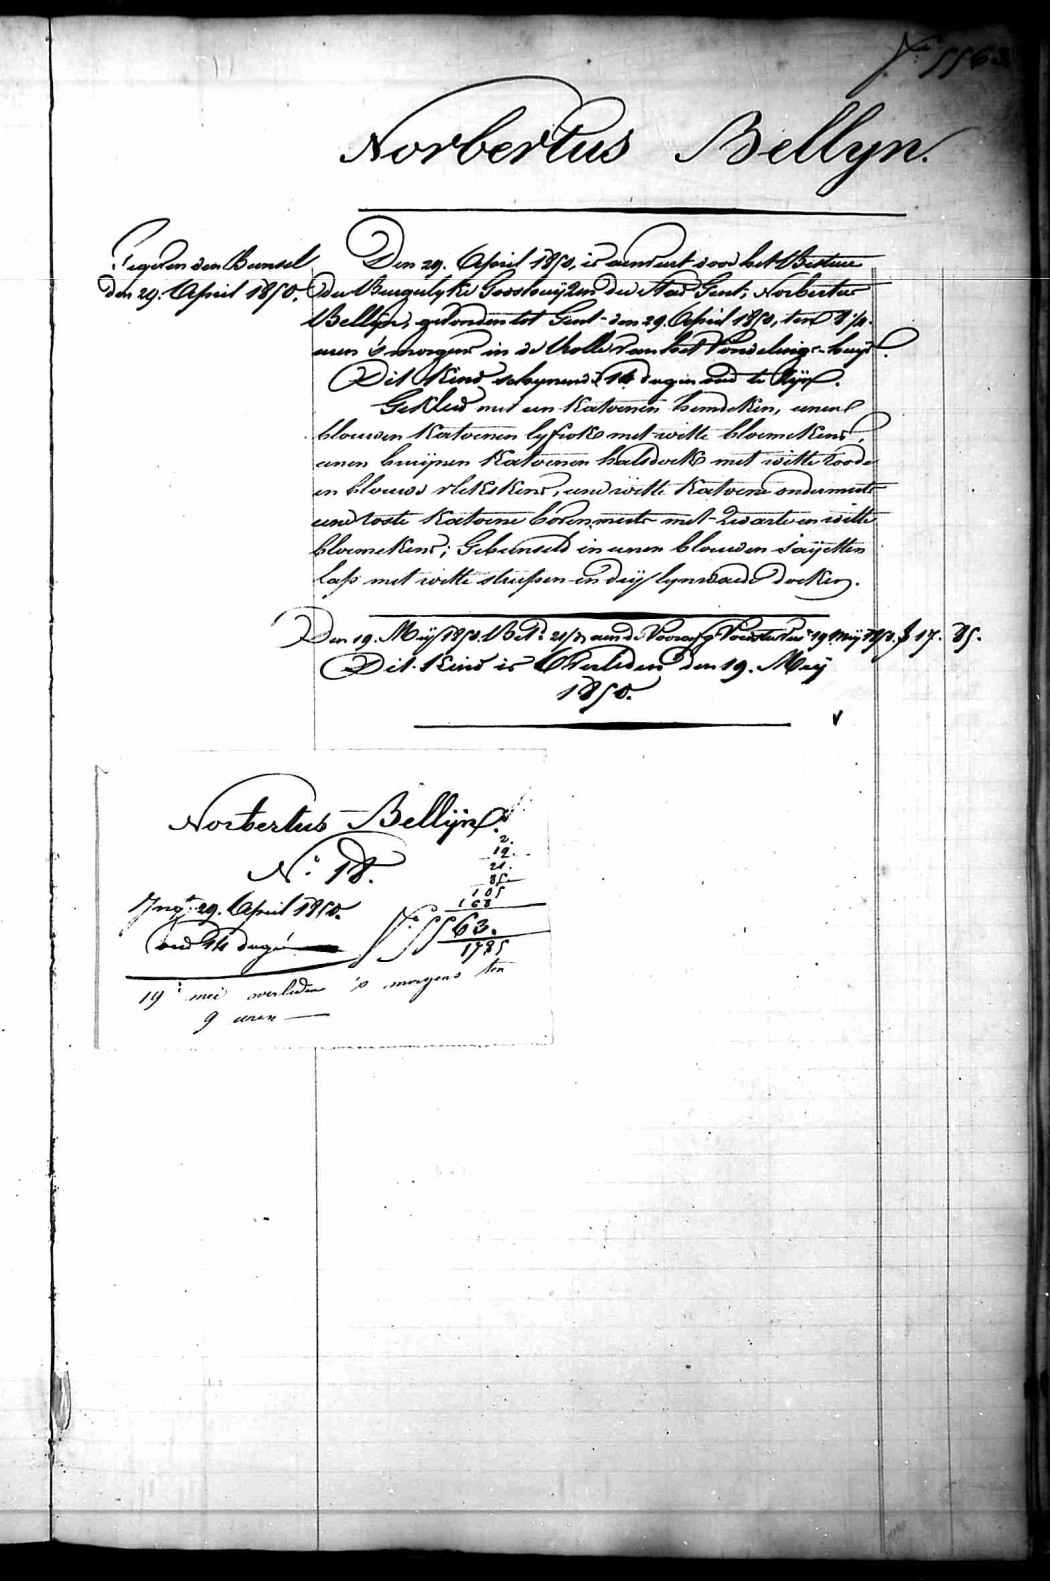 Nº 5563
Norbertus Bellyn.
Gegeven den Bunsel
den 29. April 1850.
Den 29. April 1850, is aenveert door het Bestuer
der Burgerlyke Godshuijzen der Stad Gent; Norbertus
Bellijn, gevonden tot Gent den 29. April 1850, ten 8 1/4
uren 's morgens in de Rolle van het Vondelings-huys.
Dit Kind schynende 14 dagen oud te Zijn.
Gekleed met een Katoenen hemdeken, eenen
blouwen Katoenen lyfrok met witte bloemekens,
eenen bruijnen Katoenen halsdoek met witte roode
en blouwe vlekskens, eene witte Katoene ondermuts
eene roste Katoene bovenmuts met Zwarte en witte
bloemekens; Gebunseld in eenen blouwen saijetten
lap met witte streepen en dry lynwaede doeken.
Den 19. Meij 1850. Bet. 21/7 aen de Voorsz Voedster tot 19 Meij 1850. f 17. 85.
Dit Kind is Overleden den 19. Meij
1850.
Norbertus Bellijn.
Nº 18.
2.
12.
21.
85
105
168
Ing. 29. April 1850.
oud 14 dagen
Nº 5563.
1785
19 mei overleden 's morgens ten
9 uren